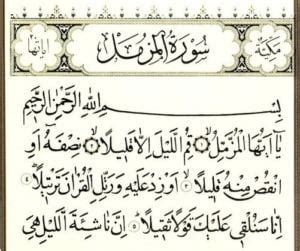 مكية سورة المزمل اياتها
بِسْمِ اللهِ الرَّحْمٰنِ الرَّحِيْمِ
يَا اَيُّهَا الْمُزَّمِّلُ ۝١ قُمِ اللَّيْلَ اِلَّا قَلِيلًا ۝٢ نِصْفَهُ اَوِ
انْقُصْ مِنْهُ قَلِيلًا ۝٣ اَوْ زِدْ عَلَيْهِ وَرَتِّلِ الْقُرْاٰنَ تَرْتِيلًا ۝٤
اِنَّا سَنُلْقِى عَلَيْكَ قَوْلًا ثَقِيلًا ۝٥ اِنَّ نَاشِئَةَ الَّيْلِ هِىَ